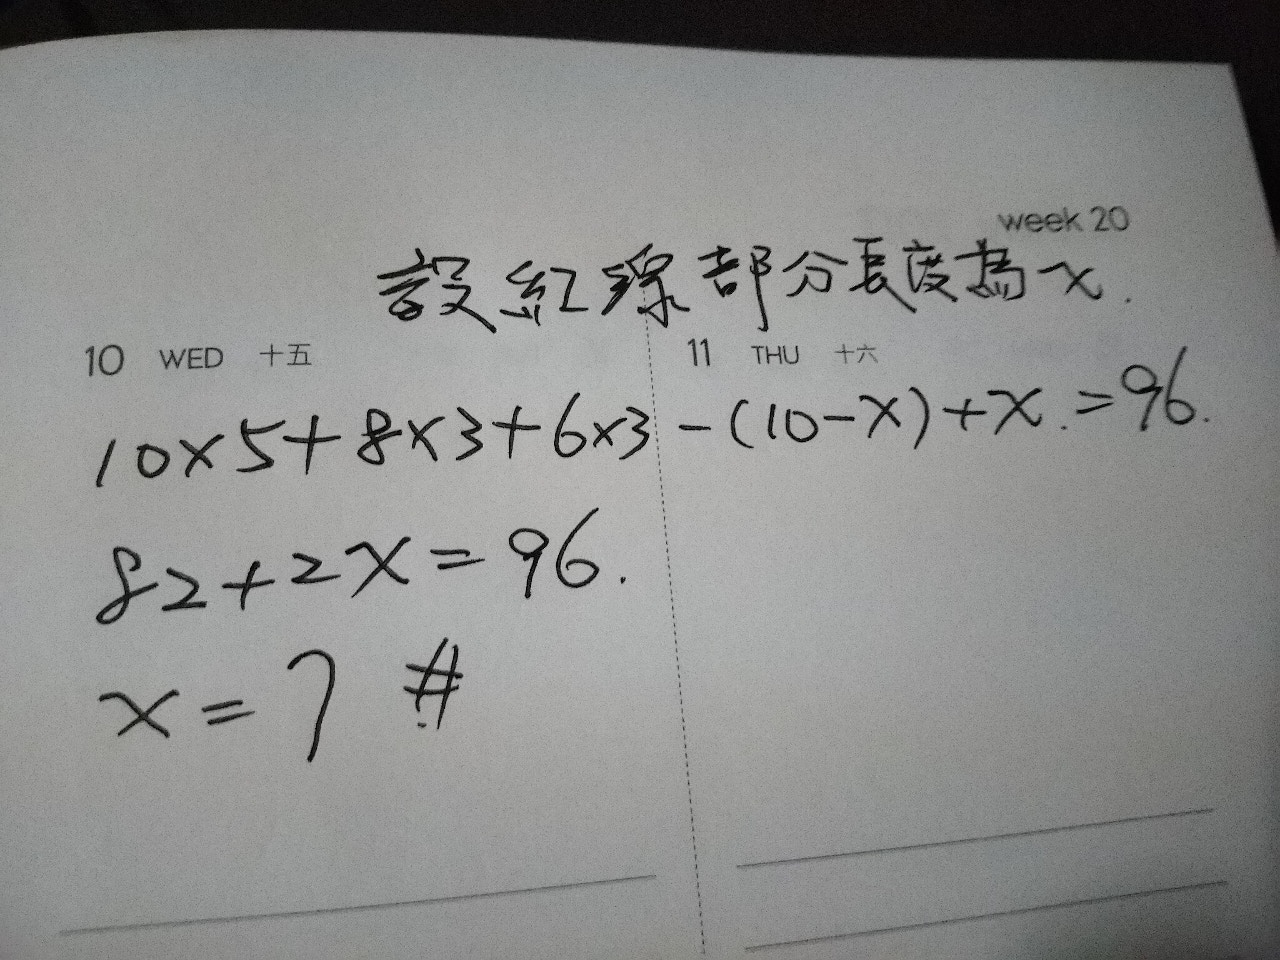 week 20
設紅線部分長度為x.
10 WED 十五
11 THU 十六
10×5+8×3+6×3-(10-x)+x.=96.
82+2x=96.
x=7 #